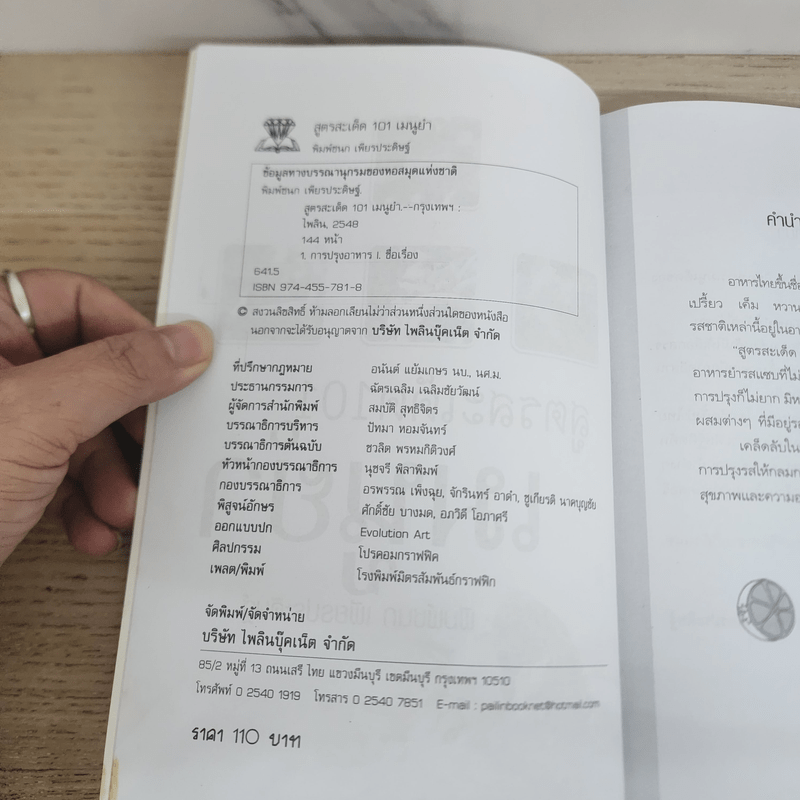 สูตรสะเด็ด 101 เมนูยำ
พิมพ์ชนก เพียรประดิษฐ์
ข้อมูลทางบรรณานุกรมของหอสมุดแห่งชาติ
พิมพ์ชนก เพียรประดิษฐ์.
สูตรสะเด็ด 101 เมนูยำ.--กรุงเทพฯ :
ไพลิน, 2548
144 หน้า
1. การปรุงอาหาร I. ชื่อเรื่อง
641.5
ISBN 974-455-781-8
© สงวนลิขสิทธิ์ ห้ามลอกเลียนไม่ว่าส่วนหนึ่งส่วนใดของหนังสือ
นอกจากจะได้รับอนุญาตจาก บริษัท ไพลินบุ๊คเน็ต จำกัด
ที่ปรึกษากฎหมาย อนันต์ แย้มเกษร นบ., นศ.ม.
ประธานกรรมการ ฉัตรเฉลิม เฉลิมชัยวัฒน์
ผู้จัดการสำนักพิมพ์ สมบัติ สุทธิจิตร
บรรณาธิการบริหาร ปัทมา หอมจันทร์
บรรณาธิการต้นฉบับ ชวลิต พรหมกิติวงศ์
หัวหน้ากองบรรณาธิการ นุชจรี พิลาพิมพ์
กองบรรณาธิการ อรพรรณ เพ็งฉุย, จักรินทร์ อาดำ, ชูเกียรติ นาคบุญชัย
พิสูจน์อักษร ศักดิ์ชัย บางมด, อภวิดี โอภาศรี
ออกแบบปก Evolution Art
ศิลปกรรม โปรคอมกราฟฟิค
เพลต/พิมพ์ โรงพิมพ์มิตรสัมพันธ์กราฟฟิก
จัดพิมพ์/จัดจำหน่าย
บริษัท ไพลินบุ๊คเน็ต จำกัด
85/2 หมู่ที่ 13 ถนนเสรี ไทย แขวงมีนบุรี เขตมีนบุรี กรุงเทพฯ 10510
โทรศัพท์ 0 2540 1919 โทรสาร 0 2540 7851 E-mail : pailinbooknet@hotmail.com
ราคา 110 บาท
คำนำ
อาหารไทยขึ้นชื่อ
เปรี้ยว เค็ม หวาน
รสชาติเหล่านี้อยู่ในอา
"สูตรสะเด็ด
อาหารยำรสแซบที่ไม่
การปรุงก็ไม่ยาก มีห
ผสมต่างๆ ที่มีอยู่ร
เคล็ดลับใน
การปรุงรสให้กลมก
สุขภาพและความอ